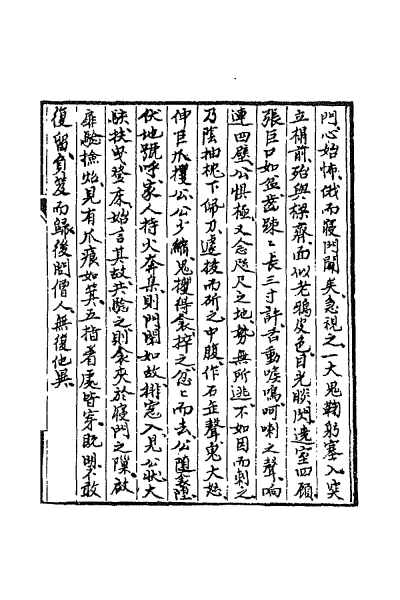 門心始怖俄而寢門闢矣急視之一大鬼鞠躬塞入突
立榻前殆與樑齊面似老鴉皮色目光睒閃遶室四顧
張巨口如盆齒疎〻長三寸許舌動喉鳴呵喇之聲响
連四壁公懼極又念咫尺之地勢無所逃不如因而刺之
乃陰抽枕下佩刀遽拔而斫之中腹作石缶聲鬼大怒
伸巨爪攫公公少縮鬼攫得衾捽之忿〻而去公隨衾墮
伏地號呼家人持火奔集則門閉如故排窓入見公狀大
駭扶曳登床始言其故共驗之則衾夾於寢門之隙啟
扉驗檢炤見有爪痕如箕五指着處皆穿既明不敢
復留負笈而歸後問僧人無復他異